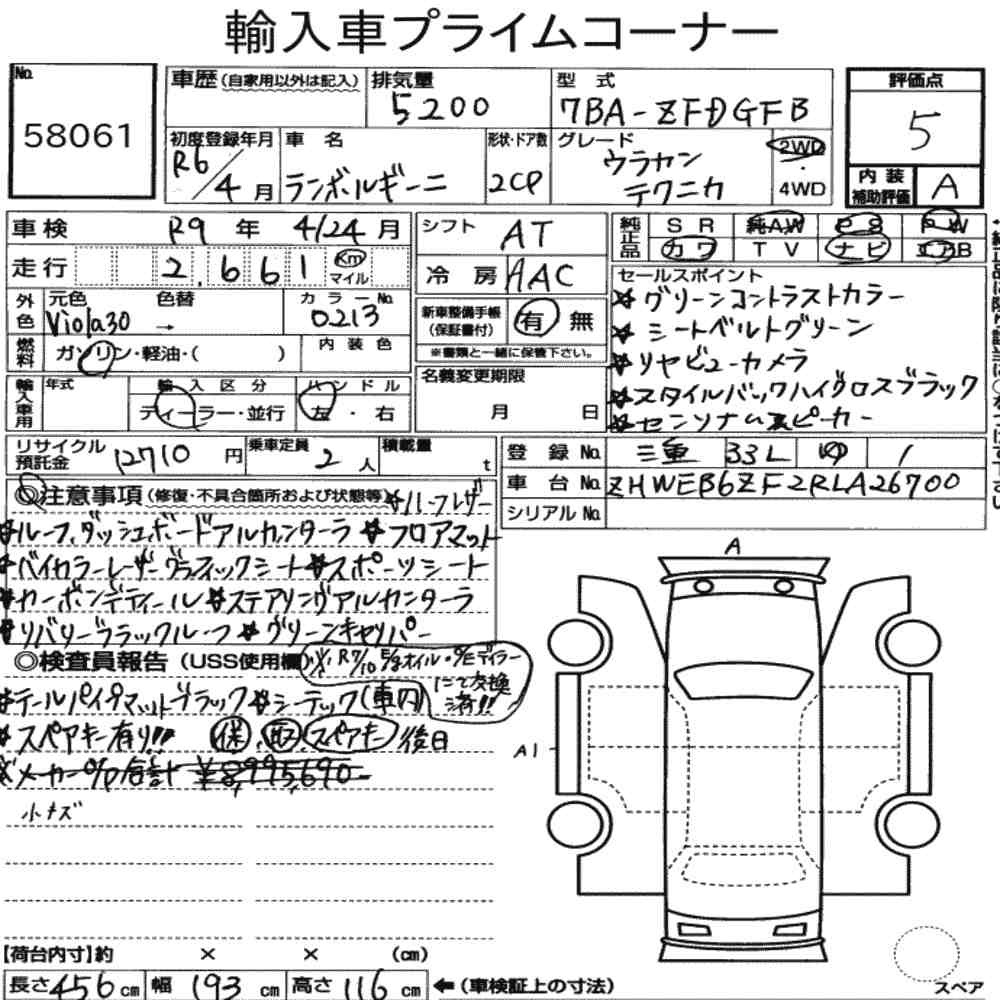 輸入車プライムコーナー
No. 58061
車歴 (自家用以外は記入)
排気量 5200
型式 7BA-ZFDGFB
評価点 5
内装補助評価 A
初度登録年月 R6/4月
車名 ランボルギーニ
形状・ドア数 2CP
グレード ウラカン テクニカ
2WD・4WD
車検 R9年 4/24月
シフト AT
純正品 SR 純AW PS PW
カワ TV ナビ エアB
走行 2,661 Km マイル
冷房 AAC
セールスポイント
☆グリーンコントラストカラー
☆シートベルトグリーン
☆リヤビューカメラ
☆スタイルパックハイグロスブラック
☆センソナムスピーカー
外色 元色 Viola30 色替 →
カラーNo. 0213
新車整備手帳(保証書付) 有 無
※書類と一緒に保管下さい。
燃料 ガソリン・軽油・( )
内装色
名義変更期限 月 日
輸入車用 年式
輸入区分 ディーラー・並行
ハンドル 左・右
リサイクル預託金 12710円
乗車定員 2人
積載量 t
登録No. 三重 331 1
車台No. ZHWEB6ZF2RLA26700
シリアルNo.
◎注意事項 (修復・不具合箇所および状態等)
☆ルーフ、ダッシュボードアルカンターラ ☆フロアマット
☆バイカラーレザーグラフィックシート☆スポーツシート
☆カーボンディティール☆ステアリングアルカンターラ
☆リバリーブラックルーフ ☆グリーンキャリパー
◎検査員報告 (USS使用欄)
R7/10 E/gオイル・O/Eディラーにて交換済!!
☆テールパイプマットブラック☆シーテック(車内)
☆スペアキー有り!! 保、取、スペアキー 後日
☆メーカーO/P合計 ¥8,995,690-
小キズ
A
A1
【荷台内寸】約 × × (cm)
長さ456cm 幅193cm 高さ116cm ←(車検証上の寸法)
スペア